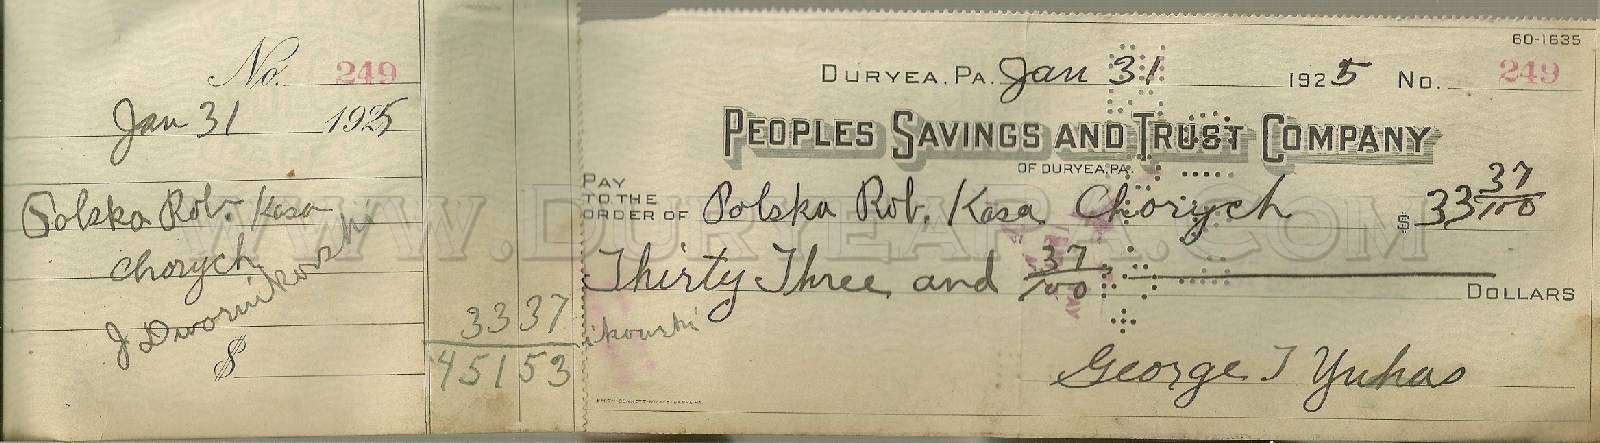 No. 249
Jan 31 1925
Polska Rob. Kasa
Chorych
J Dwornikowsk
$
33 37
451 53
60-1635
DURYEA, PA. Jan 31 1925 No. 249
PEOPLES SAVINGS AND TRUST COMPANY
OF DURYEA, PA.
PAY
TO THE
ORDER OF Polska Rob. Kasa Chorych $ 33 37/100
Thirty Three and 37/100 DOLLARS
ikowski
George J Yuhas
WWW.DURYEAPA.COM